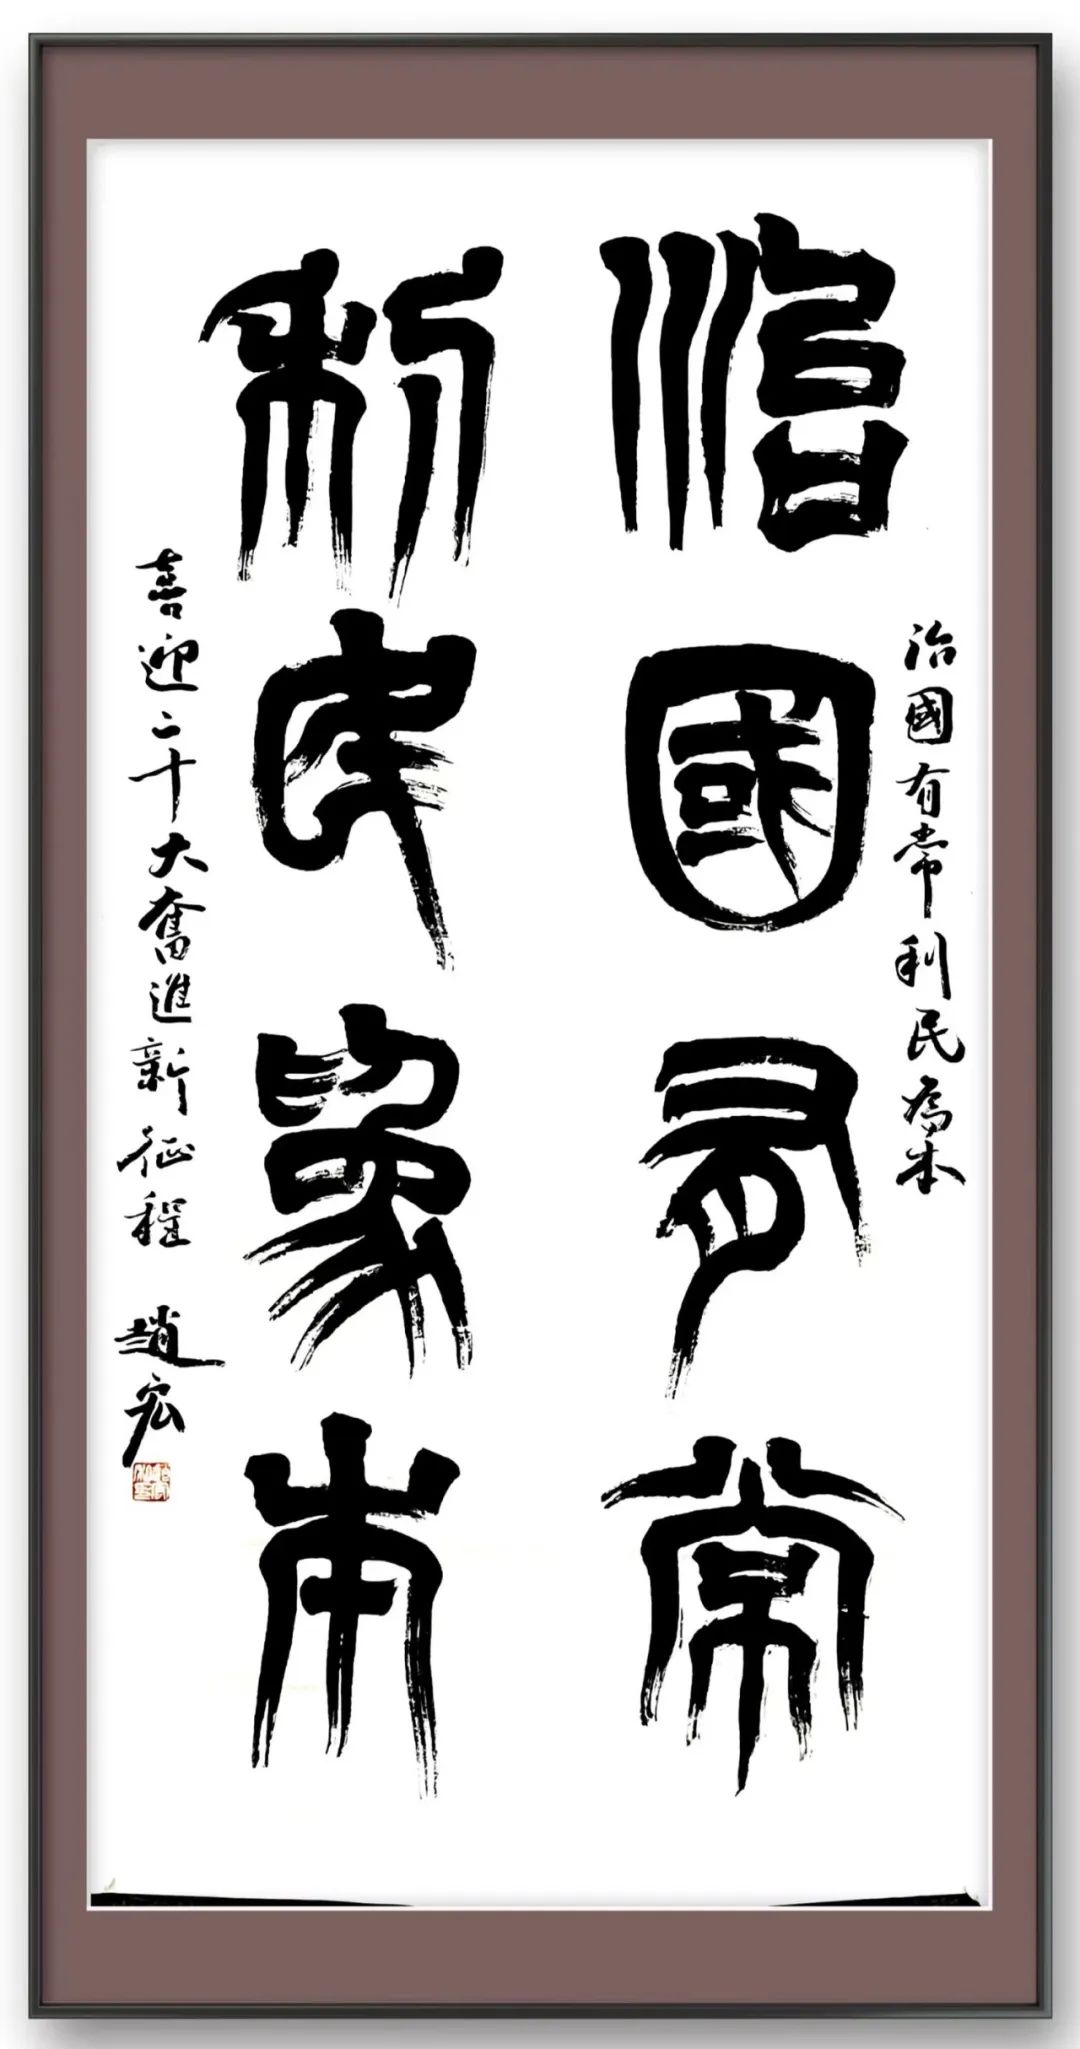 治國有常
利民爲本
治國有常利民爲本
喜迎二十大奮進新征程
趙宏